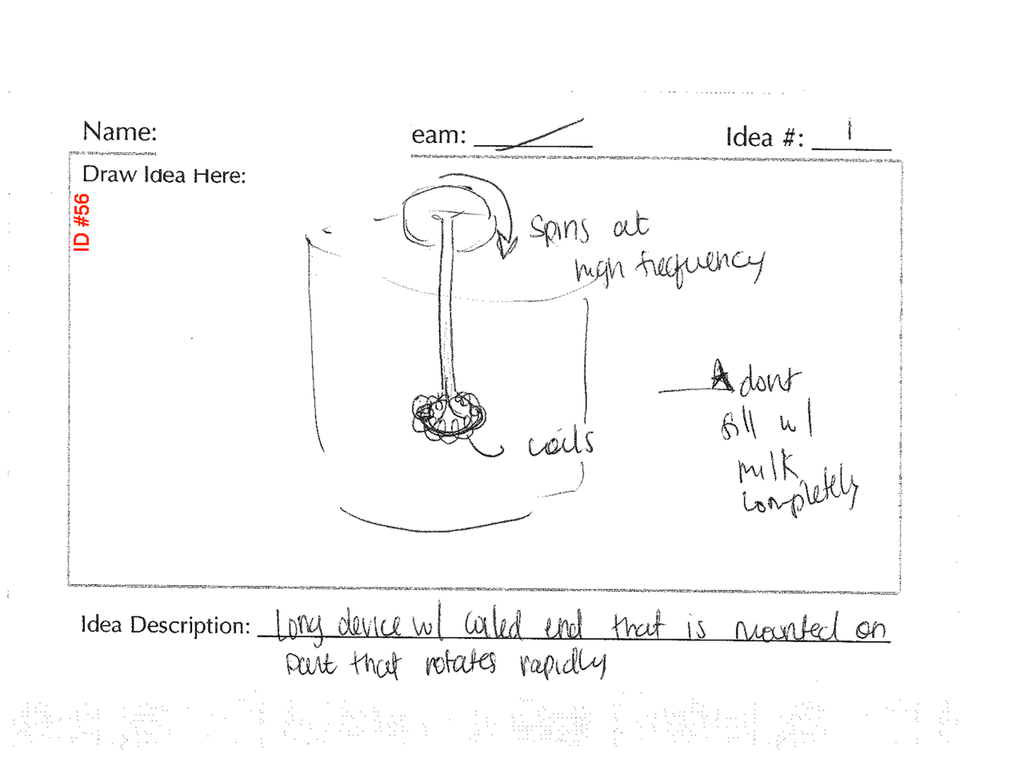 Name:
eam:
Idea #: 1
Draw Idea Here:
ID #56
spins at
high frequency
coils
★ dont
fill w/
milk
completely
Idea Description: Long device w/ coiled end that is mounted on
part that rotates rapidly